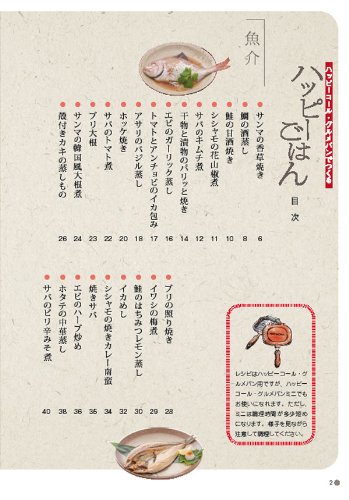 ハッピーコール・グルメパンでつくる
ハッピーごはん
目次
魚介
サンマの香草焼き 6
鯛の酒蒸し 8
鮭の甘酒焼き 10
シシャモの花山椒煮 11
サバのキムチ煮 12
干物と漬物のパリッと焼き 14
エビのガーリック蒸し 16
トマトとアンチョビのイカ包み 17
アサリのバジル蒸し 18
ホッケ焼き 20
サバのトマト煮 22
ブリ大根 23
サンマの韓国風大根煮 24
殻付きカキの蒸しもの 26
ブリの照り焼き 28
イワシの梅煮 29
鮭のはちみつレモン蒸し 30
イカめし 32
シシャモの焼きカレー南蛮 34
焼きサバ 35
エビのハーブ炒め 36
ホタテの中華蒸し 38
サバのピリ辛みそ煮 40
レシピはハッピーコール・グ
ルメパン用ですが、ハッピー
コール・グルメパンミニでも
お使いになれます。ただし、
ミニは調理時間が多少短め
になります。様子を見ながら
注意して調理してください。
2